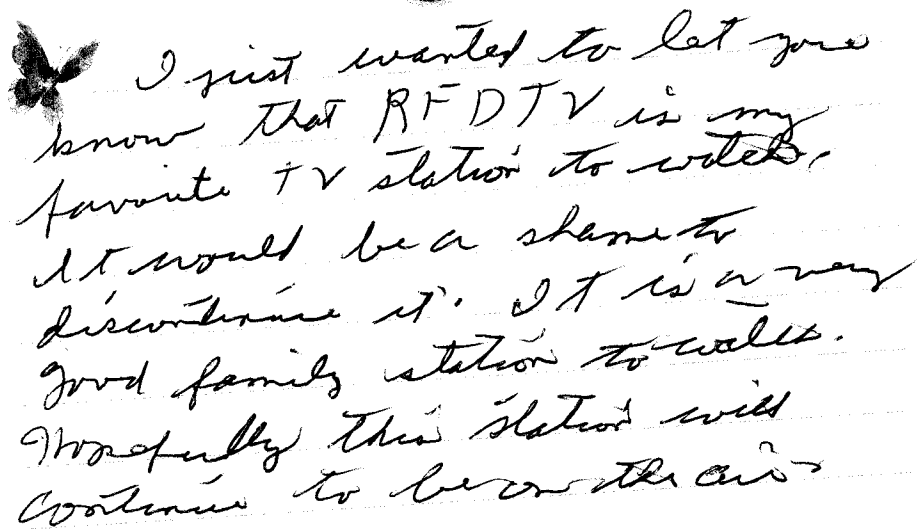 I just wanted to let you
know that RFDTV is my
favorite TV station to watch.
It would be a shame to
discontinue it. It is a very
good family station to watch.
Hopefully this station will
continue to be on the air